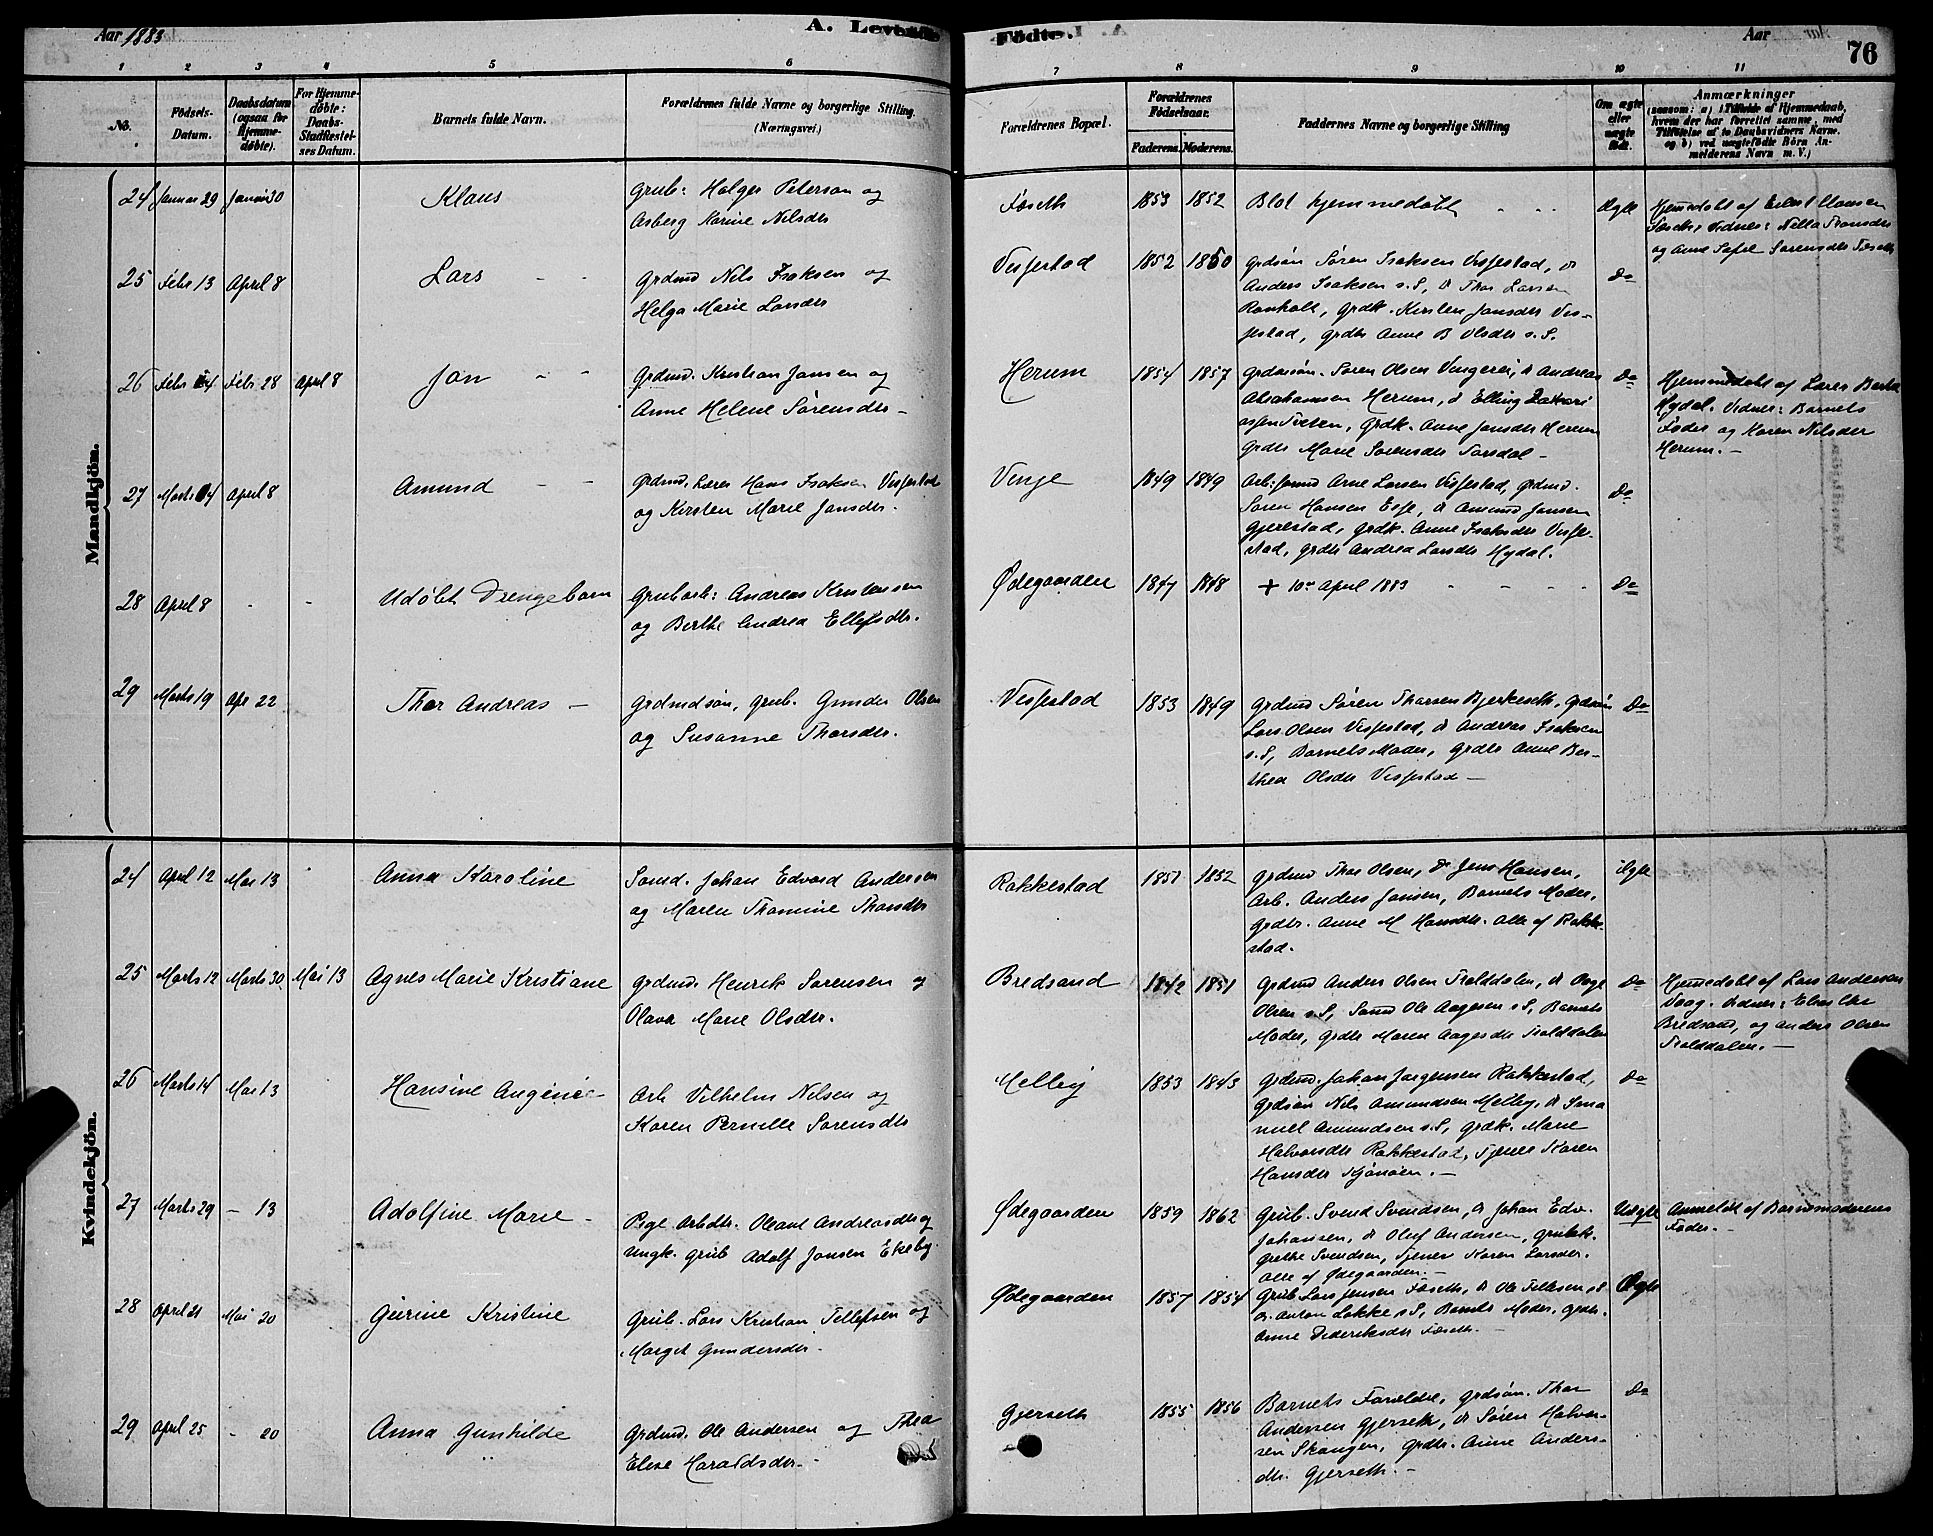 Aar 1883
A. Levende
Födte.
Aar
76
1 2 3 4 5 6 7 8 9 10 11
No.
Födsels-Datum.
Daabsdatum (ogsaa for Hjemme-döbte).
For Hjemme-döbte: Daabs-Stadfæstel-ses Datum.
Barnets fulde Navn.
Forældrenes fulde Navne og borgerlige Stilling.
(Næringsvei.)
Forældrenes Bopæl.
Forældrenes Födselsaar.
Faderens. Moderens.
Faddernes Navne og borgerlige Stilling
Om ægte eller uægte födt.
Anmærkninger
(saasom: a) i Tilfælde af Hjemmedaab,
hvem der har forrettet samme, med
Tilföielse af to Daabsvidners Navne.
og b) ved uægtefödte Börn An-
melderens Navn m. V.)
Mandkjön.
24 Januar 29 Januar 30 Klaus
Grub: Holger Peterson og
Asberg Karine Nilsdtr
Fæseth 1853 1852 Blot hjemmedøbt Ægte
Hjemmedøbt af Ernst Hansen
Fæseth, Vidner: Nella Tronsdtr
og Anne Sofie Sørensdtr Fæseth
25 Febr 13 April 8 Lars
Grdmd Nils Isaksen og
Helga Marie Larsdtr
Vissestad 1852 1850 Grdsøn Søren Isaksen Vissestad, do
Anders Isaksen s.S, do Thor Larsen
Rønholt, grdk. Kirsten Jansdtr Vis-
sestad, grdtr Anne B Olsdtr s.S.
Do
26 Febr 24 Febr 28 April 8 Jan
Grdmd. Kristian Jansen og
Anne Helene Sørensdtr -
Herum 1854 1857 Grdmsøn. Søren Olsen Vingerei, do Andreas
Abrahamsen Herum, do Elling Zakari
assen Tveten, grdk. Anne Jansdtr Herum
grdtr Marie Sørensdtr Torsdal -
Do
Hjemmedøbt af Lærer Bertel
Hydal. Vidner: Barnets
Fader og Karen Nilsdtr
Herum. -
27 Marts 4 April 8 Amund
Grdmd. Lærer Hans Isaksen Vissestad
og Kirsten Marie Jansdtr.
Vinje 1849 1849 Arb: Sømd Arne Larsen Vissestad, grdmd.
Søren Hansen Esse, do Amund Jansen
Gjerestad, grdk. Anne Isaksdtr Visse-
stad, grdtr Andrea Larsdtr Hydal.
Do
28 April 8 Udøbt Drengebarn
Grubarb: Andreas Kristensen
og Berthe Andrea Ellefsdtr.
Ødegaarden 1847 1848 + 10de April 1883 Do
29 Marts 19 Apr 22 Thor Andreas -
Grdmdsøn, grub. Gunder Olsen
og Susanne Thorsdtr.
Vissestad 1853 1849 Grdmd Søren Thorsen Bjerkeseth, Grdsøn
Lars Olsen Vissestad, do Andreas Isaksen
s.S, Barnets Moder, grdtr Anne Ber-
thea Olsdtr Vissestad -
Do
Kvindekjön.
24 April 12 Mai 13 Anna Karoline
Sømd. Johan Edvard Andersen
og Maren Thomine Thorsdtr
Rakkestad 1851 1852 Grdmd Thor Olsen, do Jens Hansen,
Arb. Anders Jansen, Barnets Moder,
grdtr. Anne M Hansdtr. Alle af Rakke-
stad.
Ægte
25 Marts 12 Marts 30 Mai 13 Agnes Marie Kristiane
Grdmd. Henrik Sørensen og
Olava Marie Olsdtr.
Bredsand 1842 1851 Grdmd Anders Olsen Trolddalen, do Aage
Olsen s.S, Sømd Ole Aagesen s.S, Barnets
Moder, grdtr Maren Aagesdtr Trolddalen
Do
Hjemmedøbt af Lars Andersen
Vaag. Vidner: Elen
Bredsand, og Anders Olsen
Trolddalen. -
26 Marts 14 Mai 13 Hansine Angenie -
Arb Vilhelm Nilsen og
Karen Pernille Sørensdtr
Melby 1853 1843 Grdmd. Johan Jørgensen Rakkestad,
Grdsøn Nils Amundsen Melby, do Sam
uel Amundsen s.S, grdk. Marie
Halvorsdtr Rakkestad, Tjener Karen
Hansdtr Stjønøen. -
Do
27 Marts 29 - 13 Adolfine Marie -
Pige Arbdtr. Oleane Andreasdtr og
ungk. grub Adolf Jansen Ekeby
Ødegaarden 1859 1862 Grub. Svend Svendsen, do Johan Edv.
Johansen, do Oluf Andersen, grubk.
Grethe Svendsen, Tjener Karen Larsdtr.
Alle af Ødegaarden. -
Uægte Anmeldt af Barnemoderens
Fader. -
28 April 21 Mai 20 Gurine Kristine
Grub. Lars Kristian Tellefsen og
Marget Gundersdtr.
Ødegaarden 1857 1854 Grub Lars Jensen Fæseth, do Ole Tellefsen s.S
og Anton Løkke s.S, Barnets Moder, grdtr.
Anne Dideriksdtr Fæseth. -
Ægte
29 April 25 - 20 Anna Gunhilde
Grdmd. Ole Andersen og Thea
Elise Haraldsdtr. -
Gjerseth 1855 1856 Barnets Forældre, grdsøn. Thor
Andersen Gjerseth, do Søren Halvor-
sen Skaugen, grdtr. Anne Anders-
dtr. Gjerseth. -
Do